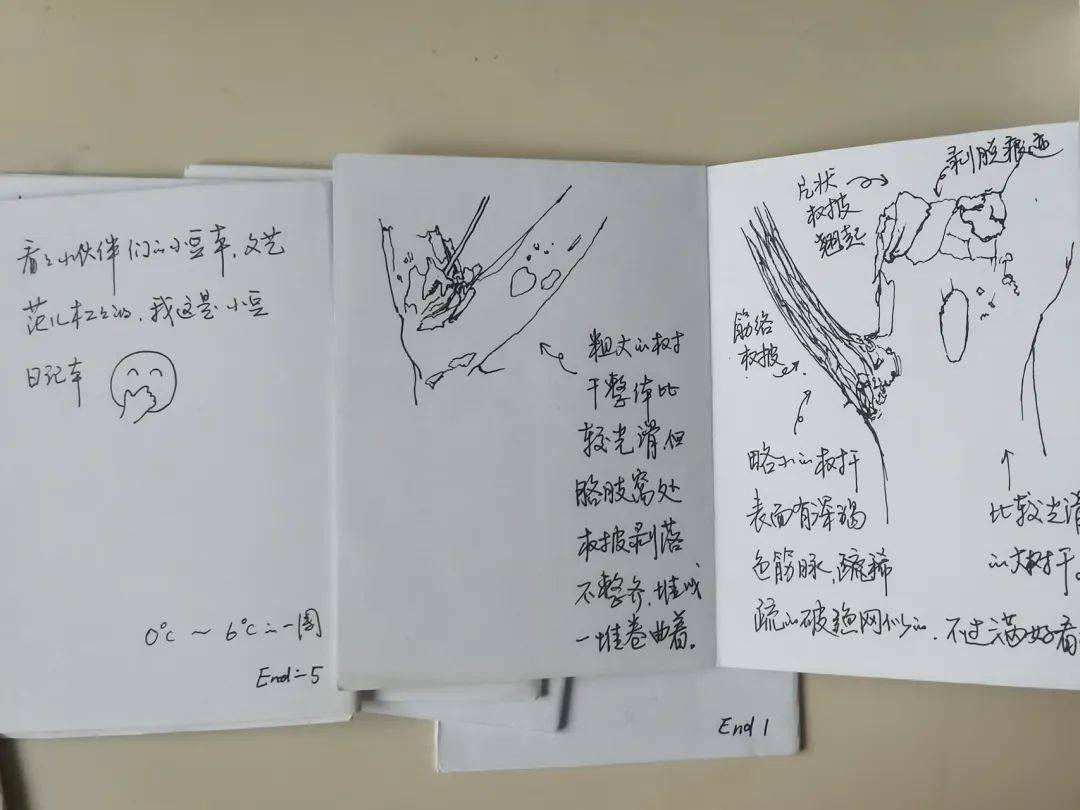 看看小伙伴们的小豆本，文艺
范儿杠杠的，我这是小豆
日记本
0℃ ~ 6℃的一周
End-5
粗大的树
干整体比
较光滑，但
胳肢窝处
树皮剥落
不整齐，堆成
一堆卷曲着。
End 1
剥脱痕迹
片状
树皮
翘起
筋络
树皮
略小的树干
表面有深褐
色筋脉，稀稀
疏疏的破渔网似的，不过满好看
比较光滑
的大树干。